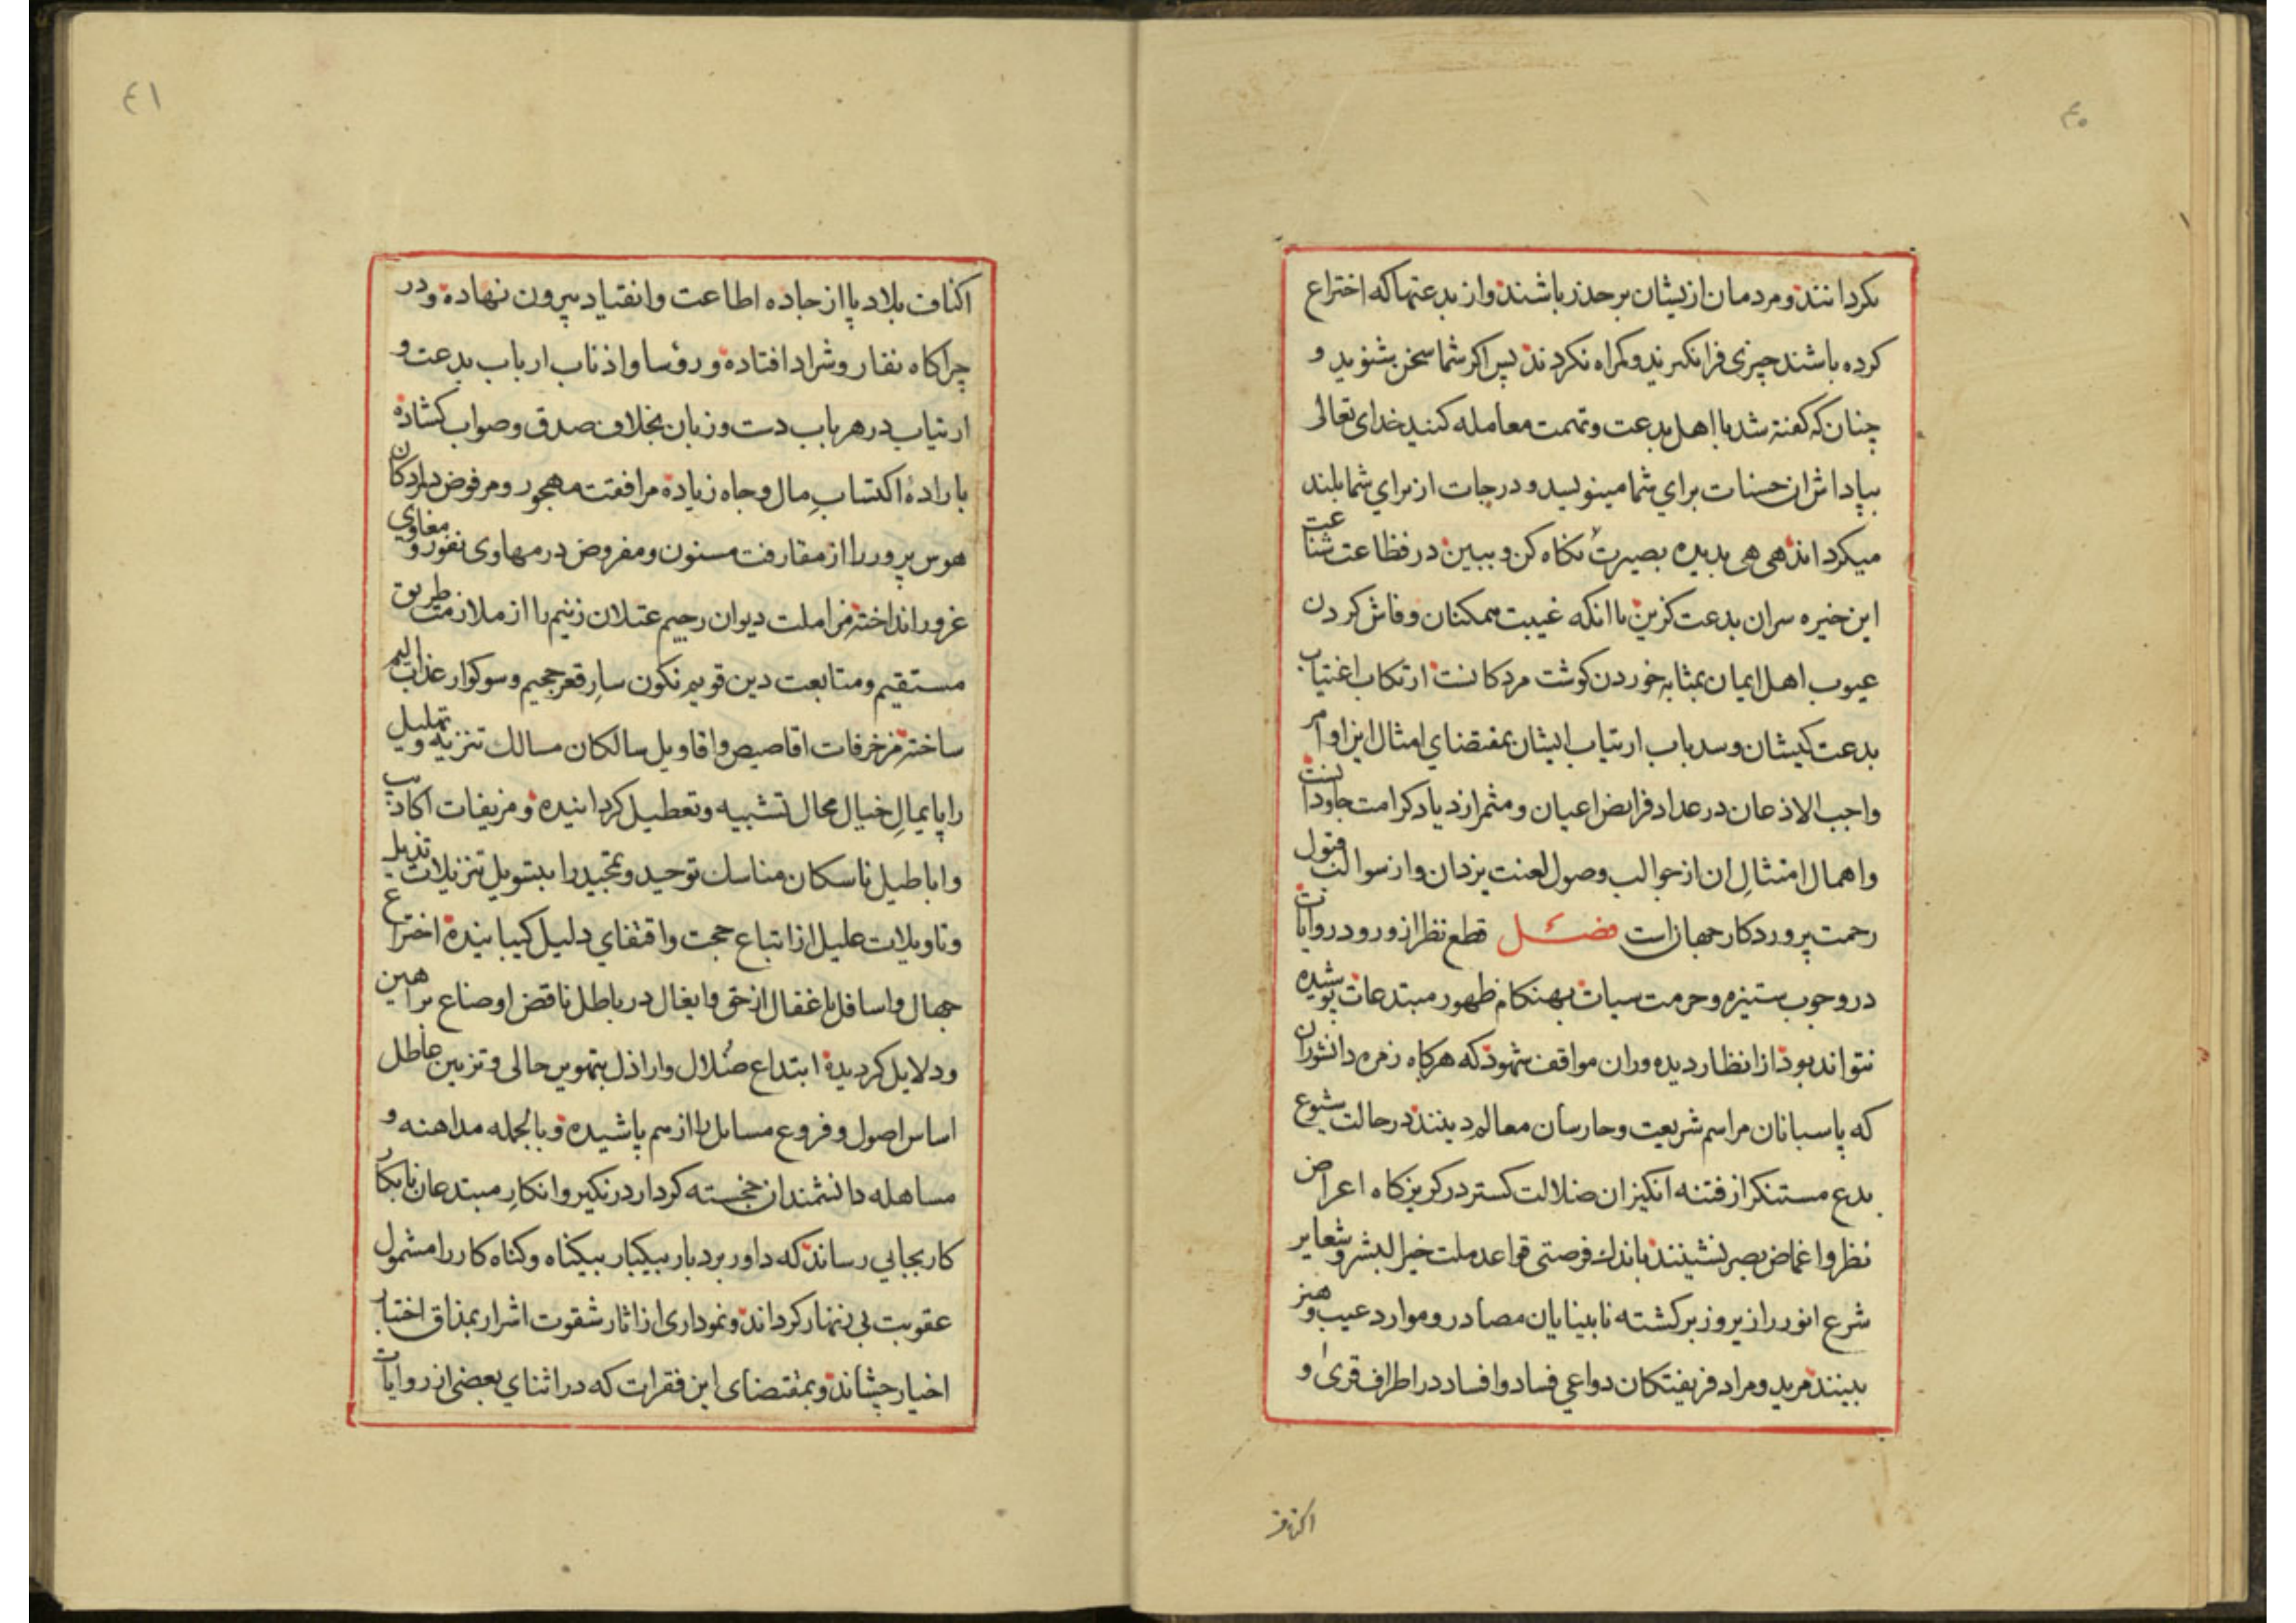 ٤٠
نکردانند و مردمان ازیشان بر حذر باشند و از بدعتها که اختراع
کرده باشند چیزی فرا نکیرند و کمراه نکردند پس اکر شما سخن بشنوید و
چنان که کفته شد با اهل بدعت و تهمت معامله کنید خدای تعالی
بپاداش ان حسنات برای شما مینویسد و درجات از برای شما بلند
میکرداند هی هی بدیده بصیرت نکاه کن و ببین در فظاعت شناعت
این خیره سران بدعت کزین با انکه غیبت ممکنان و فاش کردن
عیوب اهل ایمان بمثابه خوردن کوشت مردکانست ارتکاب اغتیاب
بدعت کیشان و سد باب ارتیاب ایشان بمقتضای امثال این اوامر
واجب الاذعان در عداد فرایض اعیان و مثمر ازدیاد کرامت جاودانست
و اهمال امتثالِ ان از جوالب وصول لعنت یزدان و از سوالب قبول
رحمت پروردکار جهانست فصل قطع نظر از ورود روایات
در وجوب ستیزه و حرمت سبات بهنکام ظهور مبتدعات پوشیده
نتواند بود از انظار دیده وران مواقف شهود که هرکاه زمره دانشوران
که پاسبانان مراسم شریعت و حارسان معالم دینند در حالت شیوع
بدع مستنکر از فتنه انکیزان ضلالت کستر در کریزکاه اعراض
نظر و اغماض بصر نشینند باندك فرصتی قواعد ملت خیر البشر و شعایر
شرع انور را زیر و زبر کشته نابینایان مصادر و موارد عیب و هنر
بینند مرید و مراد فریفتکان دواعی فساد و افساد در اطراف قری و
اکناف
٤١
اکناف بلاد پا از جاده اطاعت و انقیاد بیرون نهاده و در
چراکاه نفار و شراد افتاده و رؤسا و اذناب ارباب بدعت و
ارتیاب در هر باب دست و زبان بخلاف صدق و صواب کشاده
باراده اکتسابِ مال و جاه زیاده مرافقت مهجور و مرفوض دلردکان
هوس پرور را از مقارفت مسنون و مفروض در مهاوی نفور و مغاوی
غرور انداخته مزاملت دیوان رجیم عتلان زنیم را از ملازمت طریق
مستقیم و متابعت دین قویم نکون سارِ قعر جحیم و سوکوار عذاب الیم
ساخته مزخرفات اقاصیص و اقاویل سالکان مسالك تنزیه و تهلیل
را پایمالِ خیال محال تشبیه و تعطیل کردانیده و مزیفات اکاذیب
و اباطیل ناسکان مناسك توحید و تمجید را بتسویل تنزیلات
و تاویلات علیل از اتباع حجت و اقتفای دلیل کیبانیده اختراع
جهال و اسافل باغفال از حق و ایغال در باطل ناقض اوضاع براهین
و دلایل کردیده ابتداع ضُلال و اراذل بتمویه حالی و تزیین عاطل
اساس اصول و فروع مسایل را از هم پاشیده و بالجمله مداهنه و
مساهله دانشمندان خجسته کردار در نکیر و انکارِ مبتدعان نابکار
کار بجایی رساند که داور بردبار بیکبار بیکناه و کناه کار را مشمول
عقوبت بی زنهار کرداند و نموداری از اثار شقوت اشرار بمذاق اختبار
اخیار چشاند و بمقتضای این فقرات که در اثنای بعضی از روایات